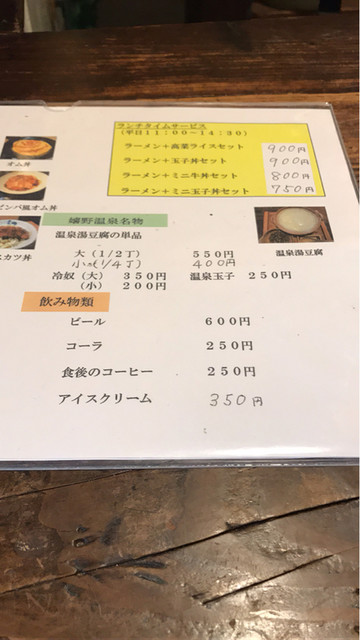 ランチタイムサービス
(平日11:00~14:30)
ラーメン+高菜ライスセット 900円
ラーメン+玉子丼セット 900円
ラーメン+ミニ牛丼セット 800円
ラーメン+ミニ玉子丼セット 750円
オム丼
ビンバ風オム丼
スカツ丼
嬉野温泉名物
温泉湯豆腐
温泉湯豆腐の単品
大(1/2丁) 550円
小(1/4丁) 400円
冷奴(大) 350円 温泉玉子 250円
(小) 200円
飲み物類
ビール 600円
コーラ 250円
食後のコーヒー 250円
アイスクリーム 350円